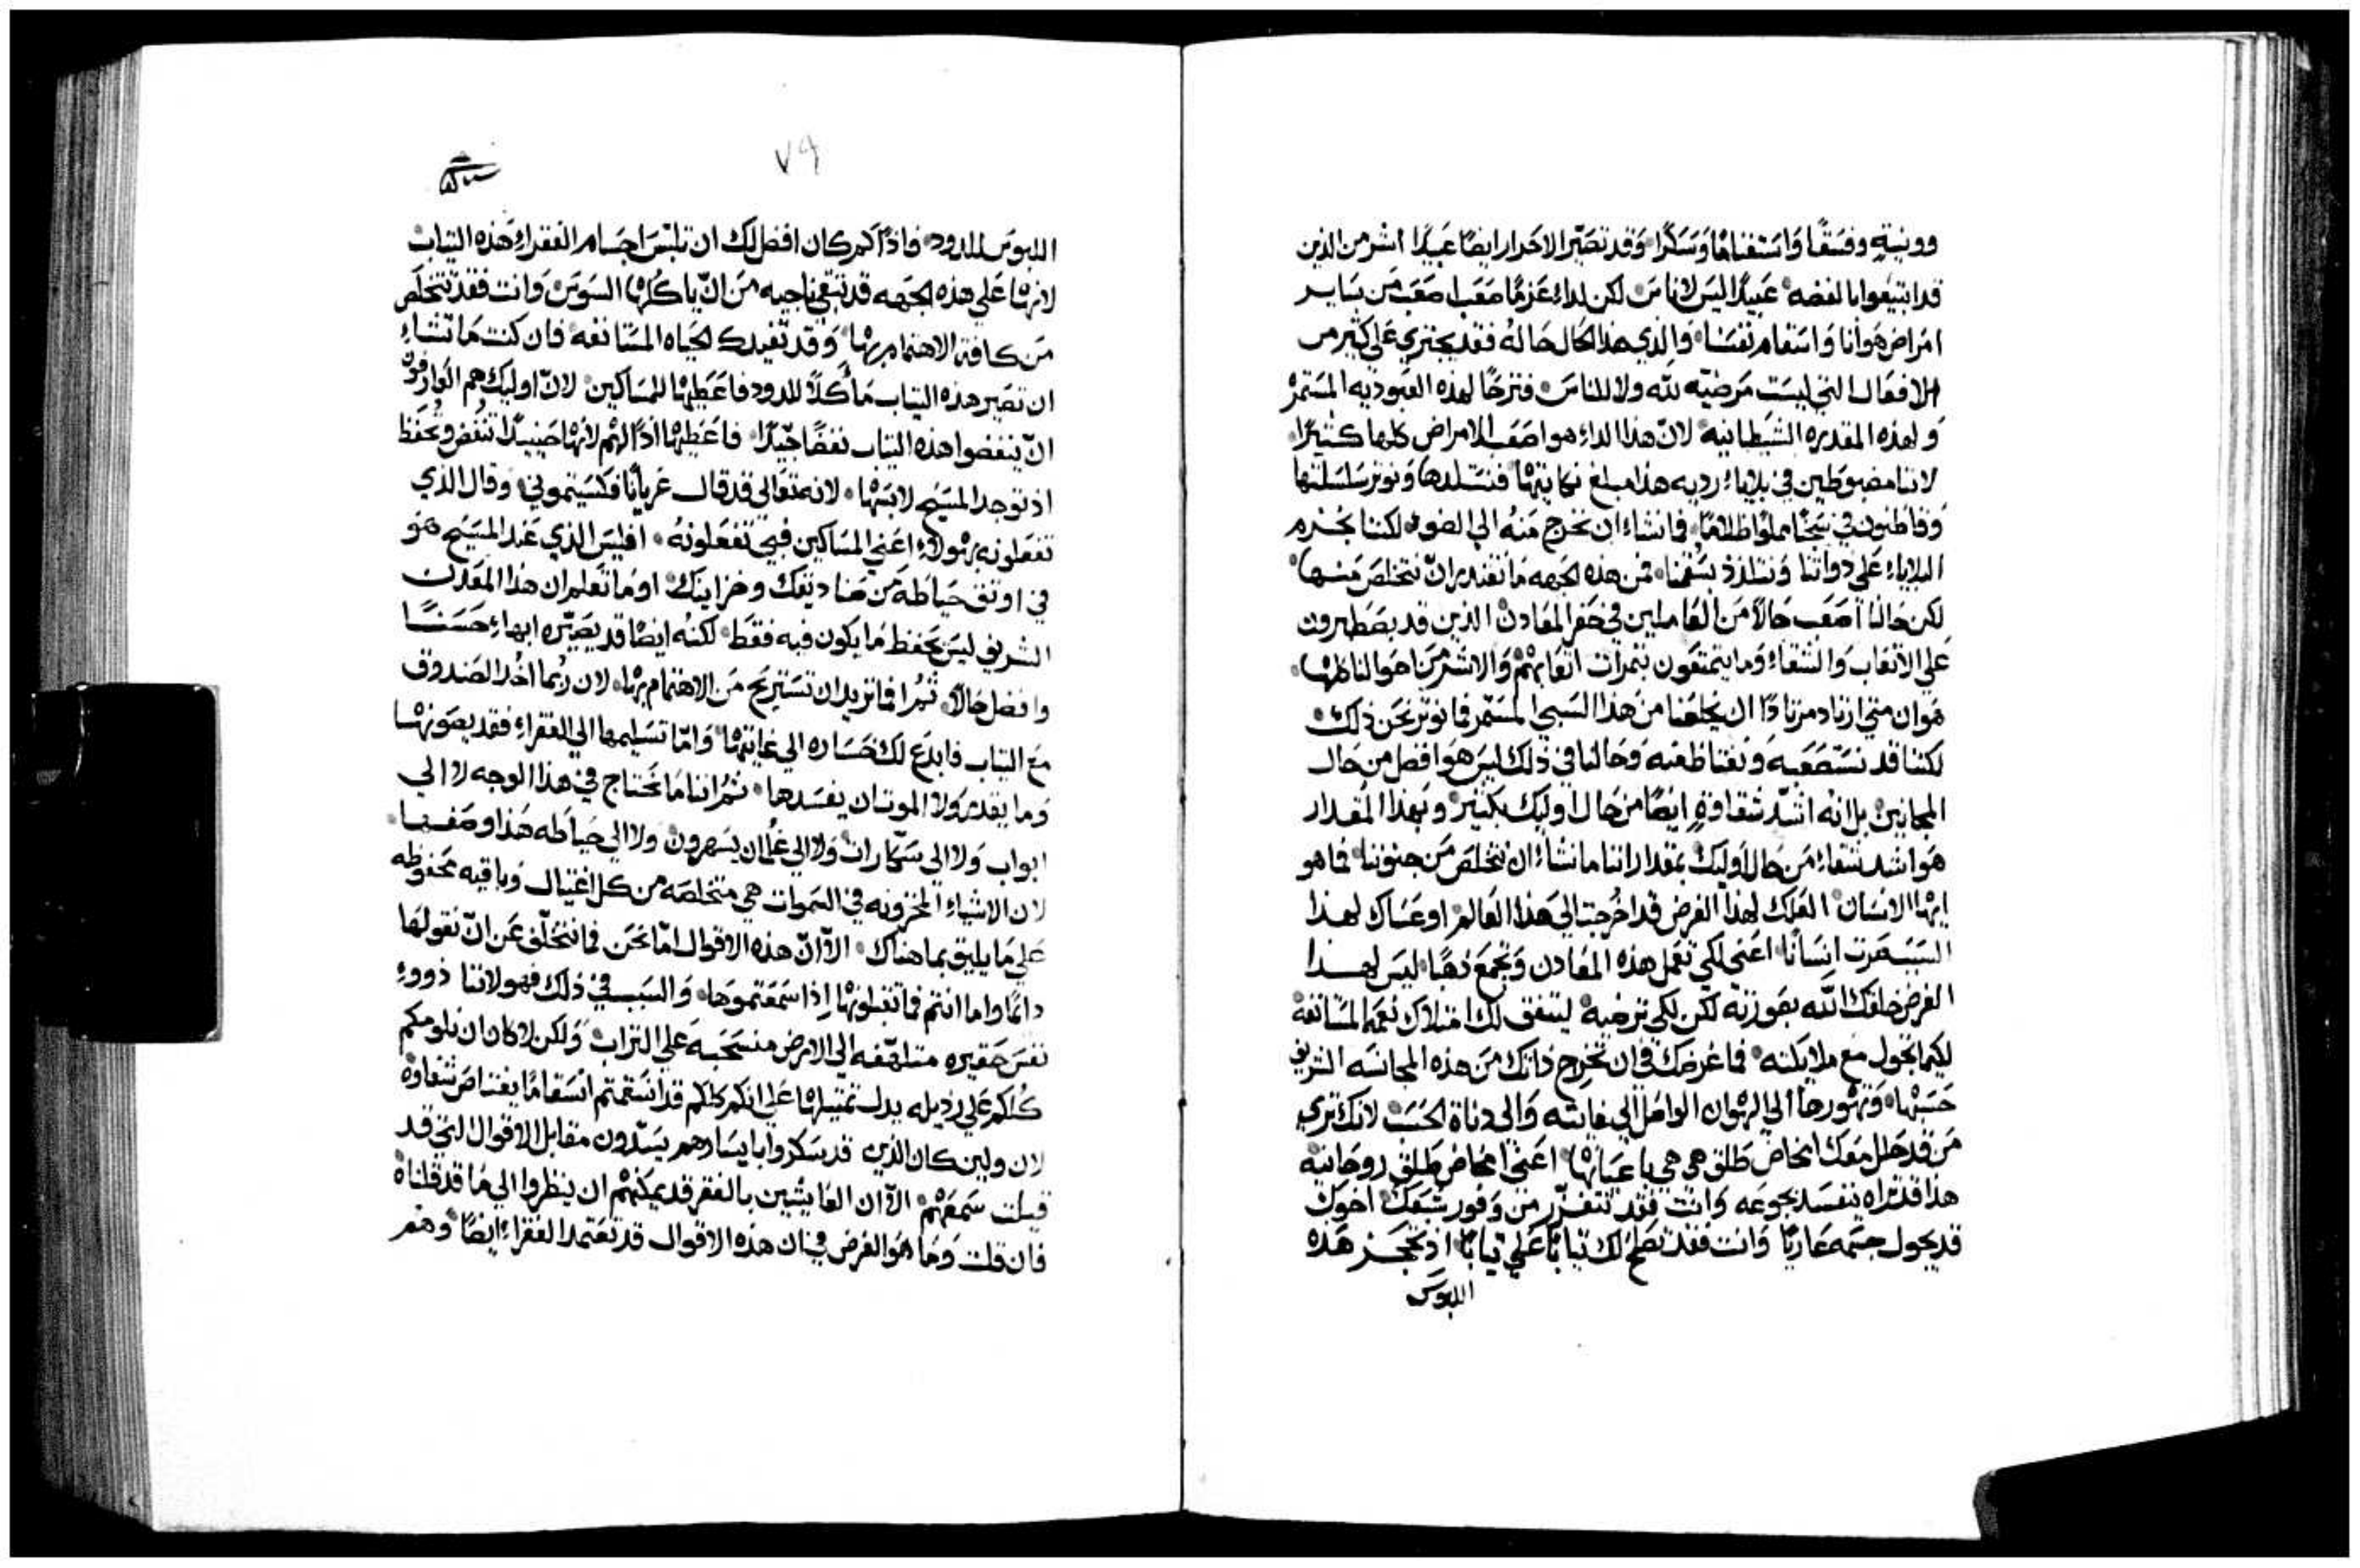 وونية وفسقا واستغناما وسكرا وقد تصير الاحرار ايضا عبيدا اشر من الذين
قد ابتيعوا بالفضه عبيدا ليس لاناس لكن لداء عزما صعب اصعب من ساير
امراض هوانا واسقام نفسنا والذي هذا الحال حاله فقد يجتري علي كثير من
الافعال التي ليست مرضيه لله ولا للناس فترحا لهذه العبوديه المستمر
ولهذه المقدره الشيطانيه لان هذا الداء هو اصعب الامراض كلها كثيرا
لاننا مضبوطين في بلاياء رديه هذا مبلغ نكايتها فنستلدها ونوثر سلسلتها
وقاطنون في سجنا مملوا ظلاما فما نشاء ان نخرج منه الي الضوء لكننا نخزم
البلاياء علي دواتنا ونتلذذ بسقمنا فمن هذه الجهه ما نقتدر ان نتخلص منها
لكن حالنا اصعب حالا من العاملين في حفر المعادن الذين قد يصطبرون
علي الاتعاب والشقاء وما يتمتعون بثمرات اتعابهم والاشر من احوالنا كلها
هوان متي ارتاد مرتادا ان يخلصنا من هذا السبي المستمر فما نوثر نحن ذلك
لكننا قد نستصعبه ونغتاظ منه وحالنا في ذلك ليس هو افضل من حال
المجانين بل انه اشد شقاوة ايضا من حال اوليك بكثير وبهذا المقدار
هو اشد شقاء من حال اوليك بمقدار اننا ما نشاء ان نتخلص من جنوننا فما هو
ايها الانسان العلك لهذا الغرض قد اخرجت الي هذا العالم او عساك لهذا
السبب صرت انسانا اعني لكي تعمل هذه المعادن وتجمع ذهبا ليس لهذا
الغرض خلقك الله بصورته لكن لكي ترضيه ليتفق لك امتلاك نعمه المستانفة
لكيما تجول مع ملايكته فما غرضك في ان تخرج ذاتك من هذه المجانسه الشريف
حسبها وتهورها الي الهوان الواصل الي غايته والي دناة الحسب لانك تري
من قد حصل معك امخاض طلق هي هي باعيانها اعني امخاض طلق روحانية
هذا قد تراه يفسد بجوعه وانت فقد تتفزر من وفور شبعك اخوك
قد يجول جسمه عاريا وانت فقد تصلح لك ثيابا علي ثيابا اذ تحجز هذه
اللبوس
٧٩
اللبوس للدود فاذا كم كان افضل لك ان تلبس اجسام الفقراء هذه الثياب
لانها علي هذه الجهه قد تبقي ناجيه من ان ياكلها السوس وانت فقد تتخلص
من كافة الاهتمام بها وقد تفيدك الحياه المستانفه فان كنت ما تشاء
ان تصير هذه الثياب ماكلا للدود فاعطها للمساكين لان اوليك هم العارفون
ان ينفضوا هذه الثياب نفضا جيدا فاعطها اذا لهم لانها حينيذا تنفض وتحفظ
اذ توجد المسيح لابسها لانه تعالي قد قال عريانا فكسيتموني وقال الذي
تفعلونه بهولاء اعني المساكين فبي تفعلونه افليس الذي عند المسيح هو
في اوثق حياطه من صناديقك وخزاينك اوما تعلم ان هذا المعدن
الشريف ليس يحفظ ما يكون فيه فقط لكنه ايضا قد يصيره ابهاء حسنا
وافضل حالا ثم افما تريد ان تستريح من الاهتمام بها لان ربما اخذ الصندوق
مع الثياب فابدع لك خساره الي غايتها واما تسليمها الي الفقراء فقد يصونها
وما يقدر ولا الموت ان يفسدها ثم اننا ما نحتاج في هذا الوجه لا الي
ابواب ولا الي سكارات ولا الي غلمان يسهرون ولا الي حياطه هذا وصفها
لان الاشياء المخزونه في السموات هي متخلصه من كل اغتيال وباقيه محفوظه
علي ما يليق بما هناك الا ان هذه الاقوال اما نحن فما نتخلف عن ان نقولها
دائما واما انتم فما تقبلونها اذا سمعتموها والسبب في ذلك فهو لاننا ذووء
نفس حقيره متلهفه الي الارض منسحبه علي التراب ولكن لا كان ان نلومكم
كلكم علي رذيله يدل تمثيلها علي انكم كلكم قد انسقمتم انسقاما يغتاص شفاوه
لان ولين كان الذين قد سكروا بايسارهم يسدون مقابل الاقوال التي قد
قيلت سمعهم الا ان العايشين بالفقر قد يمكنهم ان ينظروا الي ما قد قلناه
فان قلت وما هو الغرض في ان هذه الاقوال قد تعتمد الفقراء ايضا وهم